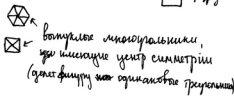 выпуклые многоугольники,
имеющие центр симметрии
(делет фигуру на одинаковые треугольники)